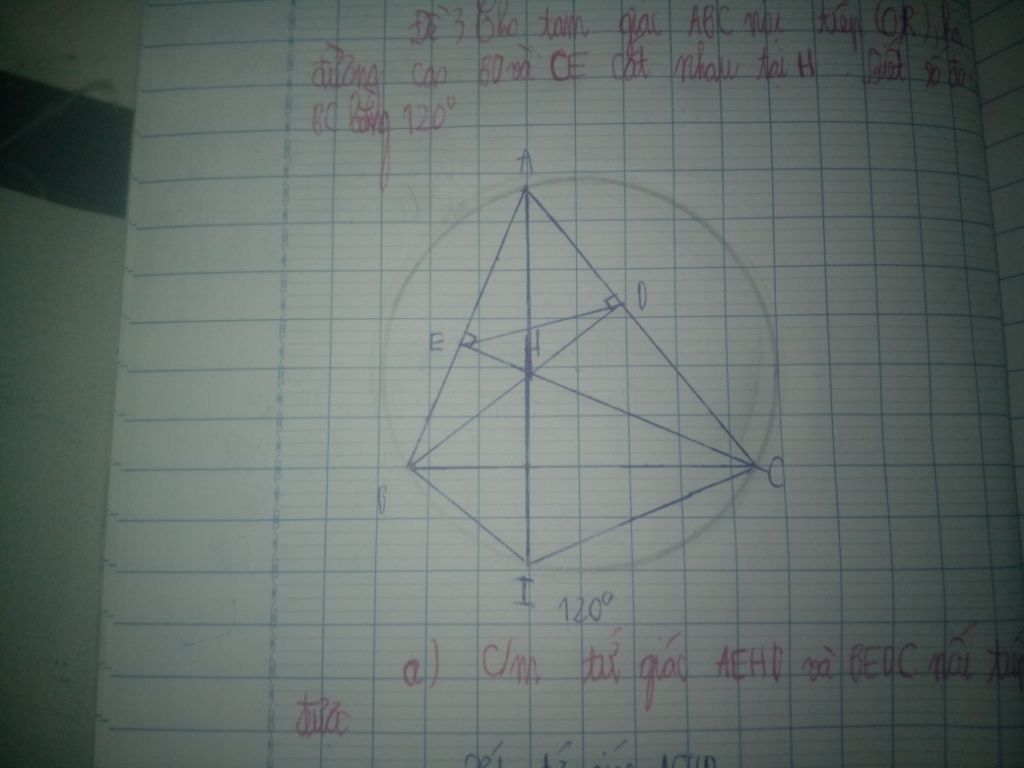 Đề 3, Cho tam giác ABC nội tiếp (O,R), hai
đường cao BD và CE cắt nhau tại H. số đo
BC bằng 120°
A
E
D
H
B
C
I
120°
a) C/m tứ giác AEHD và BEDC nội tiếp
được
tứ giác AEHD